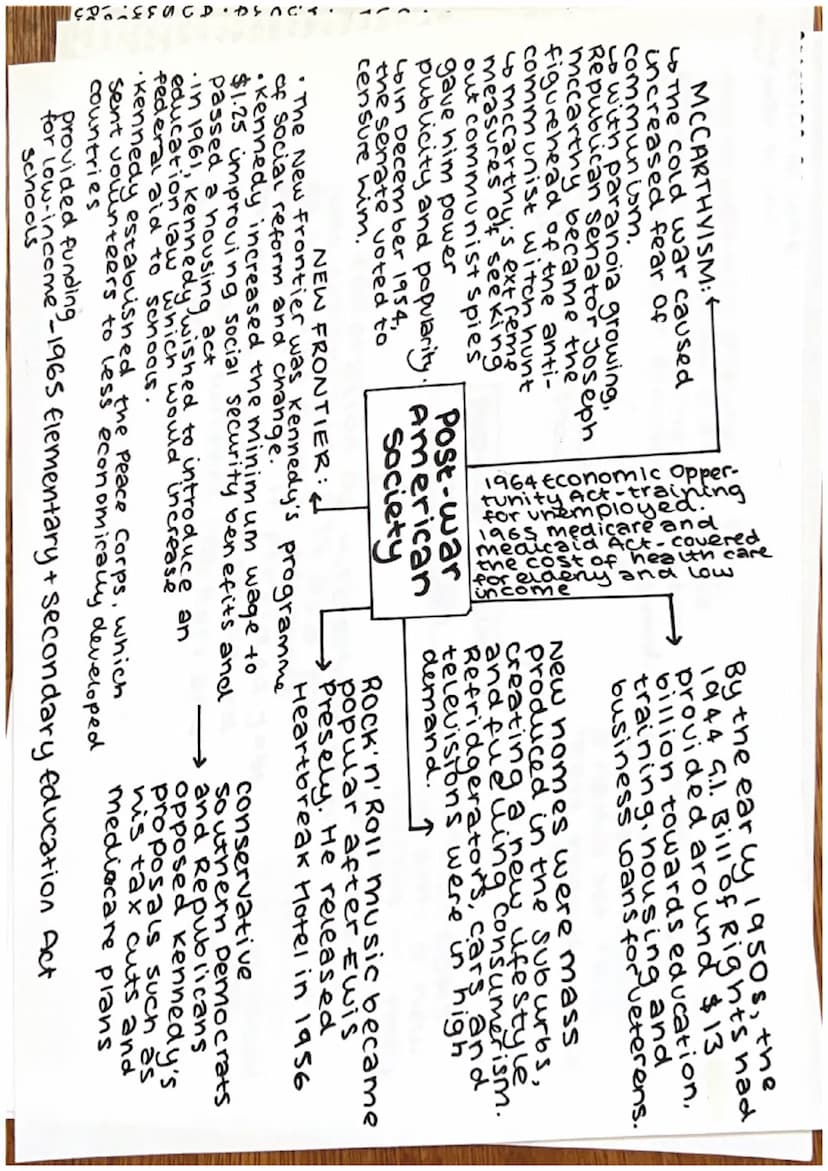 McCARTHYISM:
↳ The cold war caused
increased fear of
communism.
↳ with paranoia growing,
Republican senator Joseph
McCarthy became the
figurehead of the anti-
communist witch hunt
↳ McCarthy's extreme
measures of seeking
out communist spies
gave him power
publicity and popularity.
↳ in December 1954,
the senate voted to
censure him.
1964 Economic Opper-
tunity Act - training
for unemployed.
1965 medicare and
medicaid Act - covered
the cost of health care
for elderly and low
income
By the early 1950s, the
1944 G.I. Bill of Rights had
provided around $13
billion towards education,
training, housing and
business loans for veterens.
Post-war
American
Society
New homes were mass
produced in the suburbs,
creating a new lifestyle
and fuelling consumerism.
Refridgerators, cars and
televisions were in high
demand.
NEW FRONTIER:
• The New Frontier was Kennedy's programme
of social reform and change.
• Kennedy increased the minimum wage to
$1.25 improving social security benefits and
passed a housing act
• in 1961, Kennedy wished to introduce an
education law which would increase
federal aid to schools.
• Kennedy established the Peace Corps, which
sent volunteers to less economically developed
countries
Rock 'n' Roll music became
popular after Elvis
Presely. He released
Heartbreak Hotel in 1956
conservative
southern Democrats
and Republicans
opposed Kennedy's
proposals such as
his tax cuts and
mediacare plans
provided funding
for low-income - 1965 Elementary + Secondary Education Act
schools